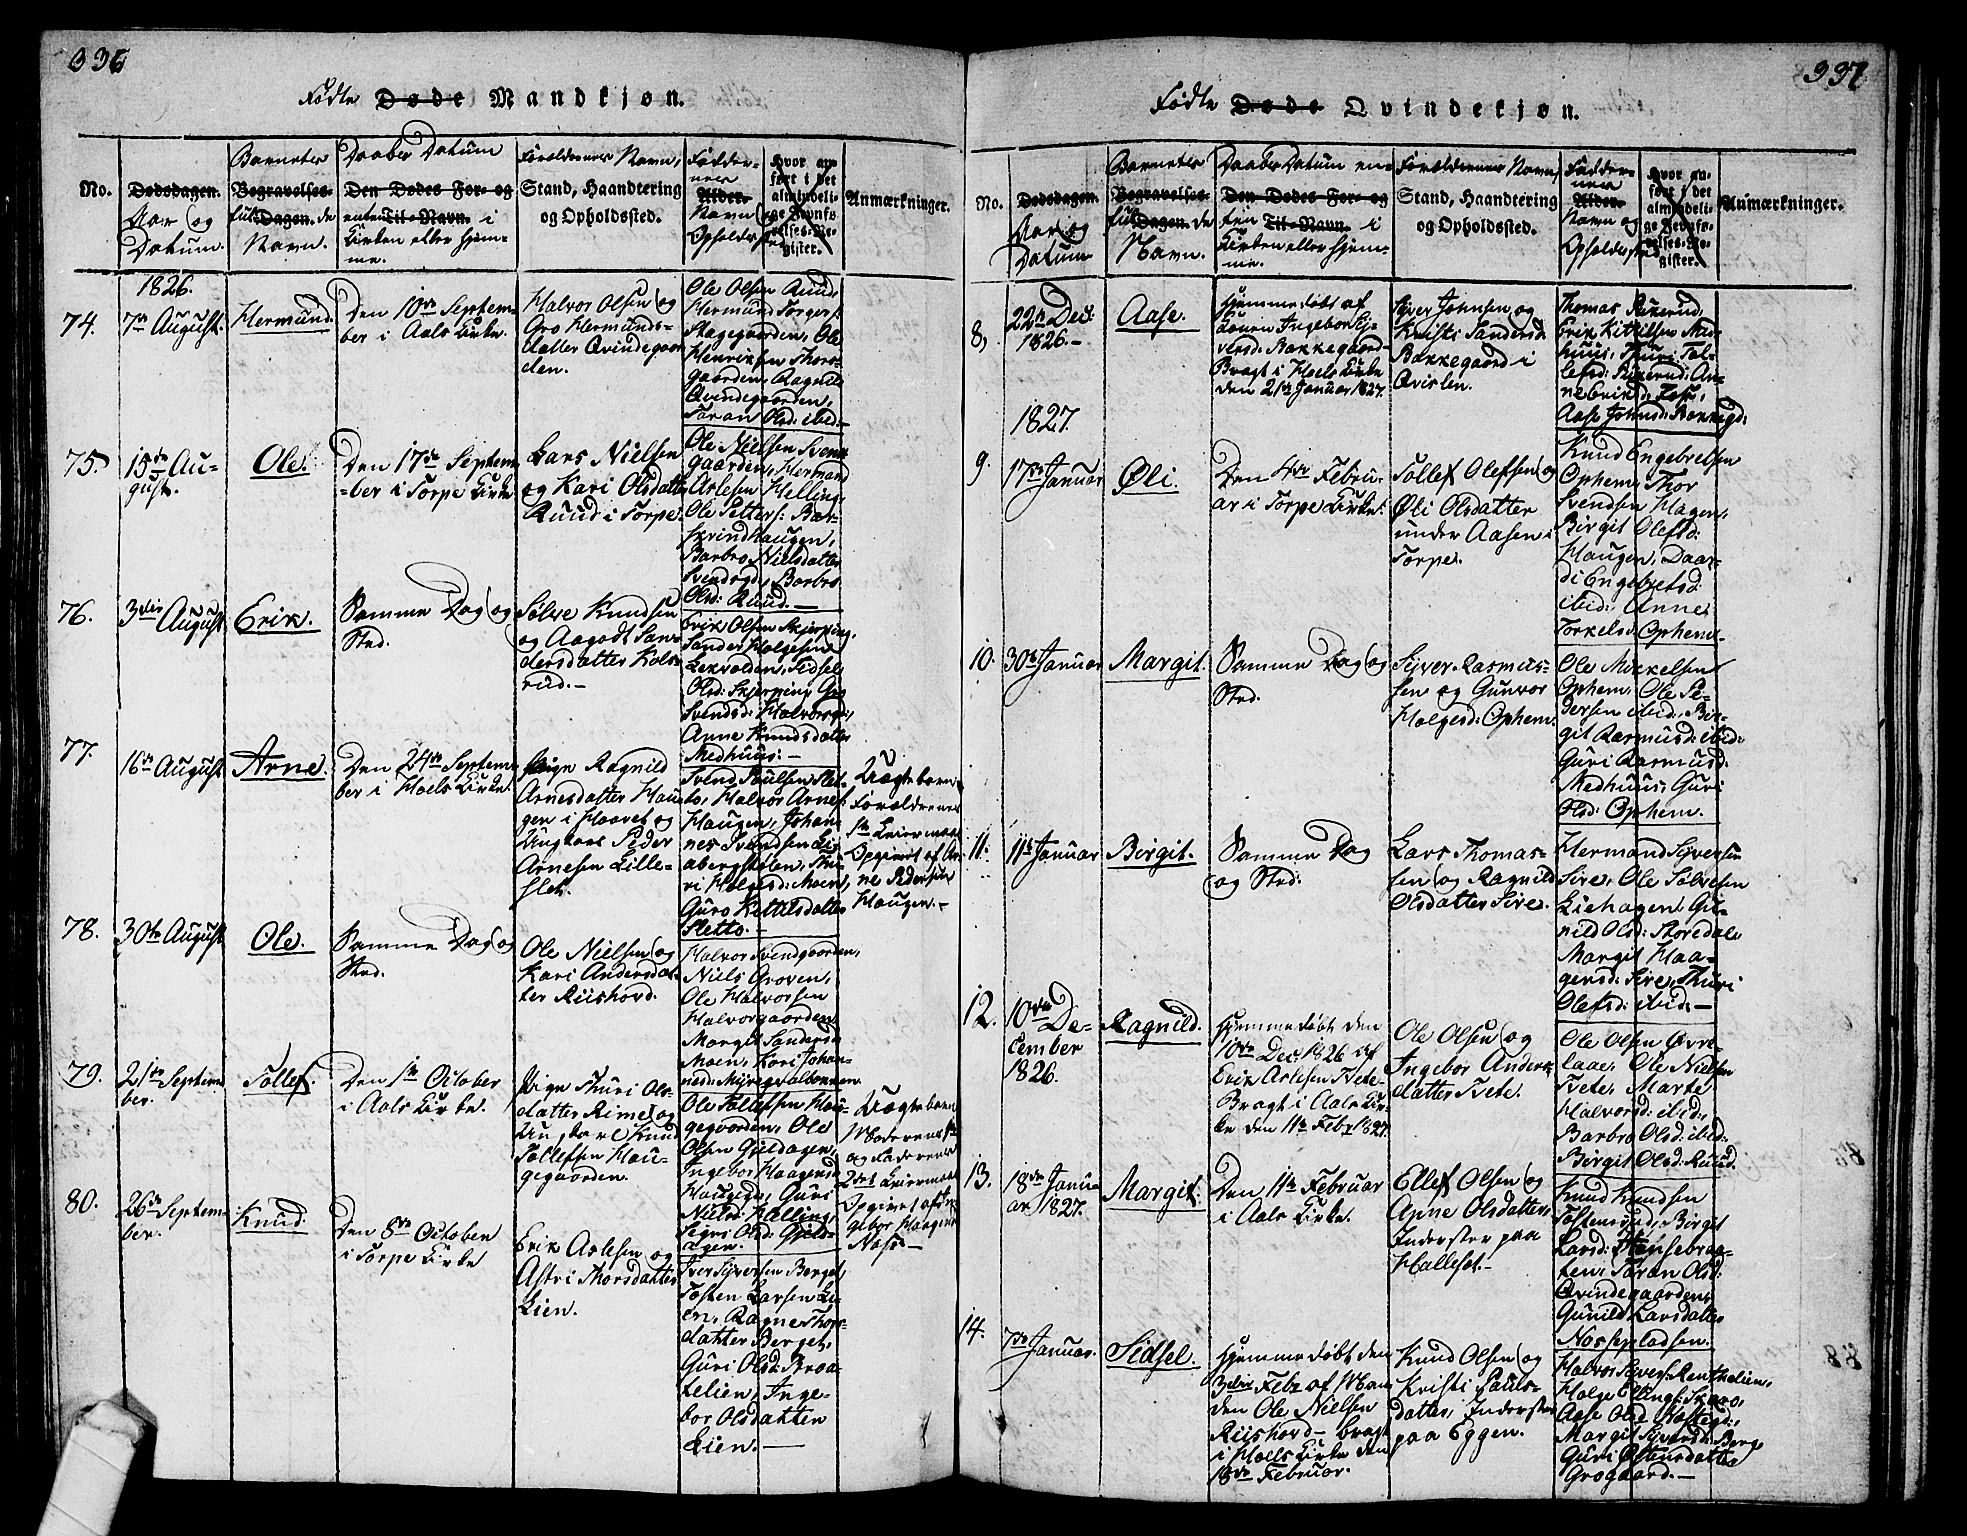 336
Födte Døde Mandkjøn.
No.
Dødsdagen.
Aar og
Datum.
Barnets
Begravelses-
fulde Dagen.
Navn.
Daabs Datum
Den Dødes For- og
enten Til-Navn. i
Kirken eller Hjem-
me.
Forældrenes Navn,
Stand, Haandtering
og Opholdssted.
Fadder-
nes
Alder.
Navn og
Opholdssted
Hvor an-
ført i det
almindeli-
ge Jevnfø-
relses-Re-
gister.
Anmærkninger.
1826.
74.
7de August.
Hermund.
Den 10de Septem-
ber i Aals Kirke.
Halvor Olsen og
Gro Hermunds-
datter Qvindegaar-
den.
Ole Olsen Ruud,
Hermund Torgers:
Skagegaarden, Ole
Henriksen Thoro-
gaarden, Ragnild
Qvindegaarden,
Taran Olsd: ibid.
75.
15de Au-
gust.
Ole.
Den 17de Septem-
ber i Torpe Kirke
Lars Nielsen
og Kari Olsdatter
Ruud i Torpe.
Ole Nielsen Svens-
gaarden, Hermand
Aslesen Helling,
Ole Petters: Bar-
skrindhaugen,
Barbro Nielsdatter
Svendsgd:, Barbro
Olsd: Ruud.
76.
3die August
Erik.
Samme Dag og
Sted.
Sølve Knudsen
og Aagodt San-
dersdatter Kols-
rud.
Erik Olsen Skjerping,
Sander Holgesen
Lexvolden, Sidsel
Olsd: Skjerping, Gro
Svendsd: Halvorsgd:,
Anne Knudsdatter
Medhuus.
77.
16de August
Arne.
Den 24de Septem-
ber i Hoels Kirke.
Pigen Ragnild
Arnesdatter Hau-
gen i Haavet og
Ungkarl Peder
Arnesen Lille-
slet.
Svend Poulsen Slet-
to, Halvor Arnes:
Haugen, Johan-
nes Svendsen Li-
abergstølen, Thu-
ri Holgesd: Moen,
Guro Kittilsdatter
Sletto.
Uægte barn
Forældrenes
1te Leiermaal
Opgivet af Ar-
ne Pedersen
Haugen.
78.
30te August
Ole.
Samme Dag og
Sted.
Ole Nielsen og
Kari Andersdat-
ter Riishord.
Halvor Svendgaarden,
Niels Groven,
Ole Halvorsen
Halvorgaarden,
Margit Sandersd:
Moen, Kari Johan-
nesd: Myregvalbenmen.
79.
21de Septem-
ber.
Tollef.
Den 1te October
i Aals Kirke.
Pigen Thuri Ols-
datter Rime og
Ungkarl Knud
Tollefsen Hau-
gegaarden.
Ole Tollefsen Hau-
gegaarden, Ole
Olsen Gjeldagen,
Ingebor Haagensd:
Haugegd:, Guri
Nielsd: Helling,
Sigri Olsd: Gjeld-
agen.
Uægte barn
Moderens 1te
og Faderens
2det Leiermaal
Opgivet af In-
gebor Haagens
Noss.
80.
26de Septem-
ber.
Knud.
Den 8de October
i Torpe Kirke
Erik Aslesen og
Astri Thorsdatter
Lien.
Iver Syversen Berget,
Tosten Larsen Li-
en, Ragne Thors-
datter Berget,
Guri Olsd: Braa-
telien, Inge-
bor Olsdatter
Lien.
337
Födte Døde Qvindekjøn.
No.
Dødsdagen.
Aar og
Datum
Barnets
Begravelses-
fulde Dagen.
Navn.
Daabs Datum en-
Den Dødes For- og
ten Til-Navn i
Kirken eller Hjem-
me.
Forældrenes Navn,
Stand, Haandtering
og Opholdssted.
Fadder-
nes
Alder.
Navn og
Opholdssted
Hvor an-
ført i det
almindeli-
ge Jevnfø-
relses-Re-
gister.
Anmærkninger.
8,
22de Dec:
1826.
Aase.
Hjemmedøbt af
Konen Ingebor Sy-
versd: Bakkegaard-
Bragt i Hoels Kirke
den 21de Januar 1827.
Syver Johnsen og
Kristi Sandersd:
Bakkegaard i
Qvislen.
Thomas Rikerud,
Erik Kittilsen Med-
huus, Thuri Tol-
lefsd: Rikerud, An-
ne Eriksd: Foss,
Aase Johnsd: Bakkegd:
1827.
9.
17de Januar
Øli.
Den 4de Febru-
ar i Torpe Kirke.
Tollef Olefsen og
Øli Olsdatter
under Aasen i
Torpe.
Knud Engebretsen
Ophem, Thor
Svendsen Hagen,
Birgit Olefsd:
Haugen, Daar-
di Engebretsd:
ibid:, Anne
Torkelsd: Ophem.
10.
30te Januar
Margit.
Samme Dag og
Sted.
Syver Rasmus-
sen og Gunvor
Holgesd: Ophem.
Ole Mikkelsen
Ophem, Ole Pe-
dersen ibid:, Bir-
git Rasmusd: ibid:
Guri Rasmusd:
Medhuus, Guri
Olsd: Ophem.
11.
11te Januar
Birgit.
Samme Dag
og Sted.
Lars Thomas-
sen og Ragnild
Olsdatter Sire.
Hermand Syversen
Sire, Ole Sølvesen
Liehagen, Gu-
nild Olsd: Storedale,
Margit Haa-
gensd: Sire, Thuri
Olefsd: ibid:
12.
10de De-
cember
1826.
Ragnild.
Hjemmedøbt den
10de Dec: 1826 af
Erik Aslesen Tvete-
Bragt i Aals Kir-
ke den 11te Febr: 1827.
Ole Olsen og
Ingebor Anders-
datter Tvete.
Ole Olsen Øvre-
laae, Ole Nielsen
Tvete, Marte
Halvorsd: ibid:,
Barbro Olsd: ibid:
Birgit Olsd: Ruud.
13.
18de Janu-
ar 1827.
Margit.
Den 11te Februar
i Aals Kirke.
Ellef Olsen og
Anne Olsdatter,
Inderster paa
Halleset.
Knud Knudsen
Tostensrud, Birgit
Larsd: Hausebraa-
ten, Taran Olsd:
Qvindegaarden,
Gunild Larsdatter
Nossepladsen.
14.
7de Januar.
Sidsel.
Hjemmedøbt den
3die Febr af Man-
den Ole Nielsen
Riishord - bragt
i Hoels Kirke den
18de Februar.
Knud Olsen og
Kristi Pauls-
datter, Inderster
paa Eggen.
Halvor Syvers: Renthelien,
Holge Ellingsen Skaro,
Aase Olsd: Hoftegd:,
Margit Syversd: Berg,
Guri Østensdatter
Grogaard.